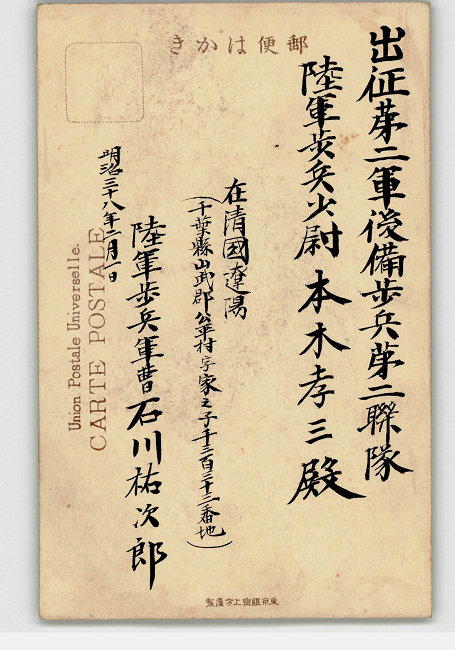 郵便はかき
出征苐二軍後備歩兵苐二聯隊
陸軍歩兵少尉 本木孝三殿
在清國遼陽
(千葉縣山武郡公平村字家之子千三百三十二番地)
陸軍歩兵軍曹 石川祐次郎
明治三十八年二月一日
Union Postale Universelle.
CARTE POSTALE
東京銀座上方屋製